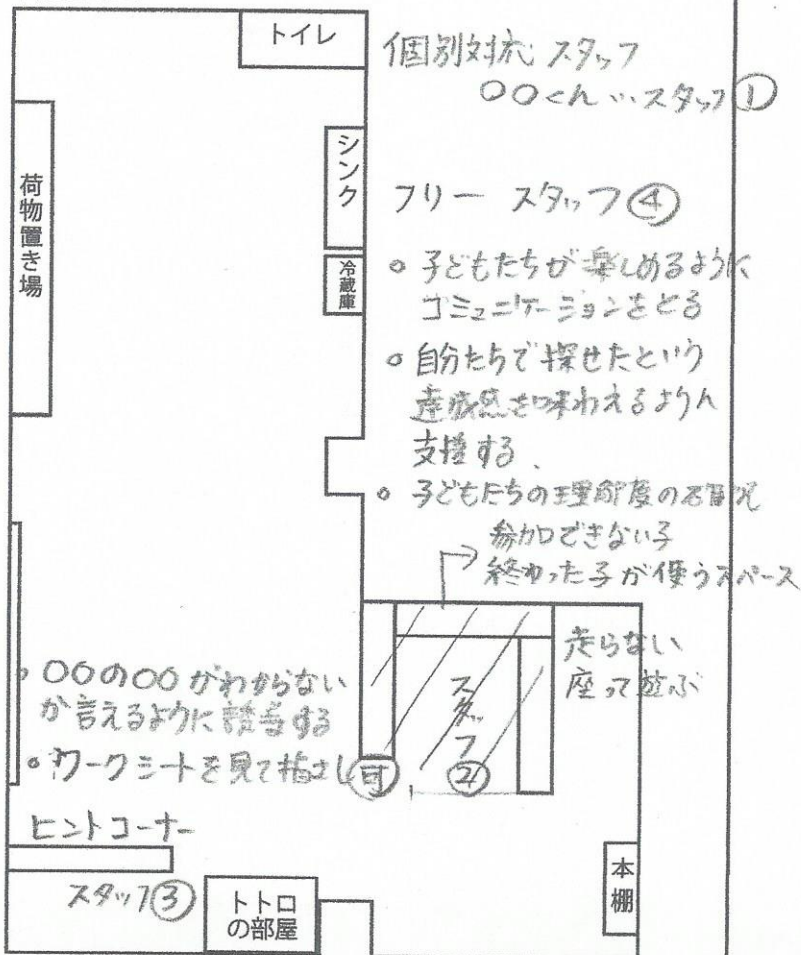 トイレ
個別対応スタッフ
〇〇くん…スタッフ①
シンク
荷物置き場
フリー スタッフ④
冷蔵庫
○子どもたちが楽しめるように
コミュニケーションをとる
○自分たちで探せたという
達成感を味わえるように
支援する、
○子どもたちの理解度の
参加できない子
終わった子が使うスペース
走らない
座って遊ぶ
スタッフ②
○〇〇の〇〇がわからない
か言えるように する
○ワークシートを見て指さし可
ヒントコーナー
スタッフ③
トトロ
の部屋
本棚